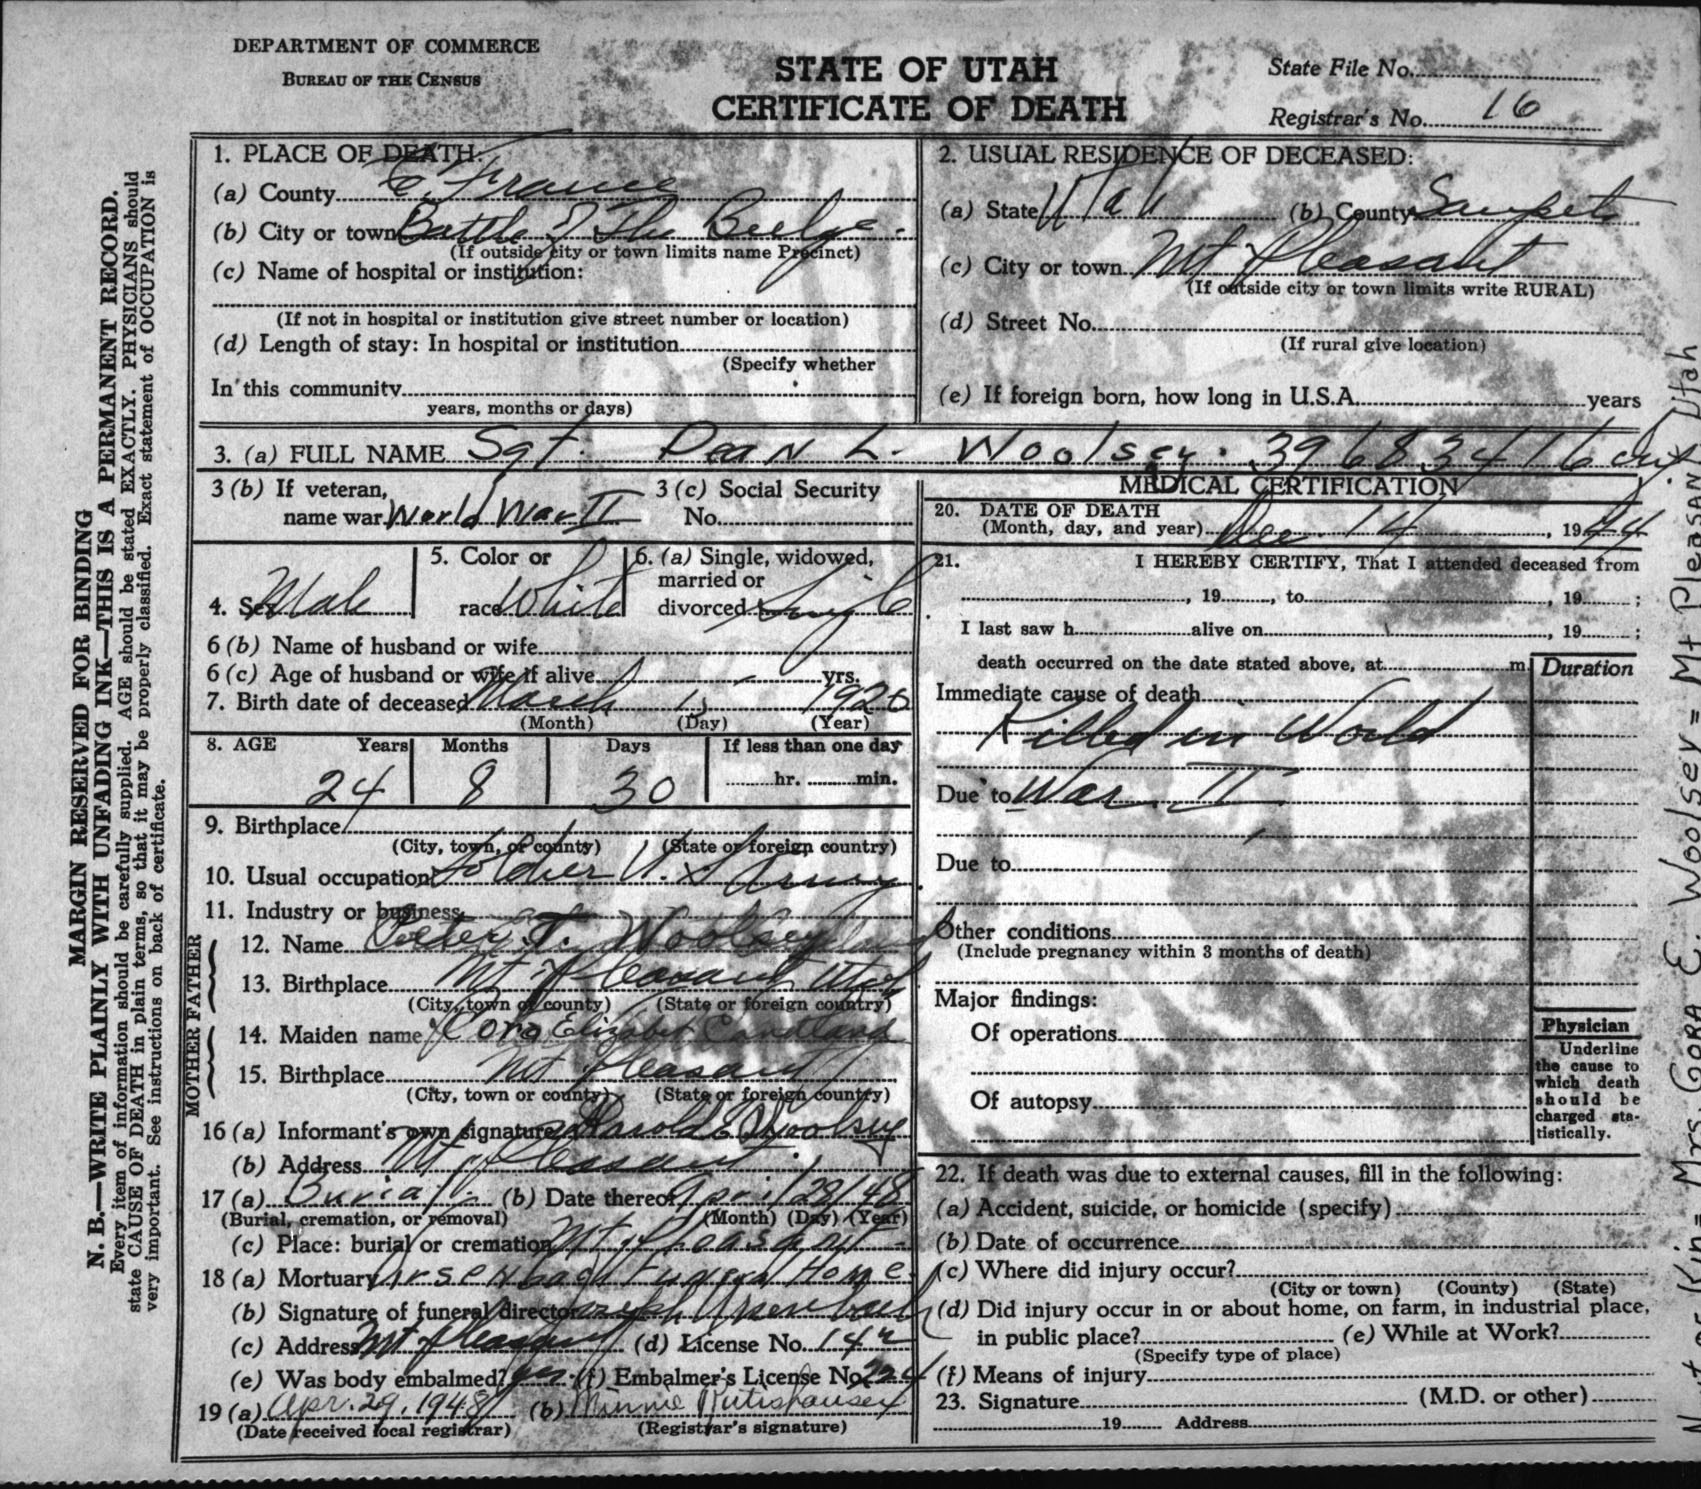 DEPARTMENT OF COMMERCE
BUREAU OF THE CENSUS
STATE OF UTAH
CERTIFICATE OF DEATH
State File No.
Registrar's No. 16
MARGIN RESERVED FOR BINDING
N. B.—WRITE PLAINLY WITH UNFADING INK—THIS IS A PERMANENT RECORD.
Every item of information should be carefully supplied. AGE should be stated EXACTLY. PHYSICIANS should
state CAUSE OF DEATH in plain terms, so that it may be properly classified. Exact statement of OCCUPATION is
very important. See instructions on back of certificate.
1. PLACE OF DEATH:
(a) County France
(b) City or town Battle of The Bulge.
(If outside city or town limits name Precinct)
(c) Name of hospital or institution:
(If not in hospital or institution give street number or location)
(d) Length of stay: In hospital or institution
(Specify whether
In this community
years, months or days)
2. USUAL RESIDENCE OF DECEASED:
(a) State Utah (b) County Sanpete
(c) City or town Mt Pleasant
(If outside city or town limits write RURAL)
(d) Street No.
(If rural give location)
(e) If foreign born, how long in U.S.A. years
3. (a) FULL NAME Sgt. Dean L. Woolsey. 39683416 Inf.
3 (b) If veteran,
name war World War II
3 (c) Social Security
No.
4. Sex Male
5. Color or
race White
6. (a) Single, widowed,
married or
divorced Single
6 (b) Name of husband or wife
6 (c) Age of husband or wife if alive yrs.
7. Birth date of deceased March 15 1920
(Month) (Day) (Year)
8. AGE Years Months Days If less than one day
24 8 30 hr. min.
9. Birthplace
(City, town, or county) (State or foreign country)
10. Usual occupation Soldier U.S Army
11. Industry or business
FATHER
12. Name Peter T. Woolsey
13. Birthplace Mt Pleasant Utah
(City, town or county) (State or foreign country)
MOTHER
14. Maiden name Cora Elizabet Candland
15. Birthplace Mt Pleasant
(City, town or county) (State or foreign country)
16 (a) Informant's own signature Harold E Woolsey
(b) Address Mt Pleasant
17 (a) Burial (b) Date thereof April 28/48
(Burial, cremation, or removal) (Month) (Day) (Year)
(c) Place: burial or cremation Mt Pleasant
18 (a) Mortuary Ursenbach Funeral Home
(b) Signature of funeral director Joseph Ursenbach
(c) Address Mt Pleasant (d) License No. 142
(e) Was body embalmed? yes (f) Embalmer's License No. 224
19 (a) Apr. 29, 1948 (b) Minnie Rutishauser
(Date received local registrar) (Registrar's signature)
MEDICAL CERTIFICATION
20. DATE OF DEATH
(Month, day, and year) Dec. 14, 1944
21. I HEREBY CERTIFY, That I attended deceased from
, 19 , to , 19 ;
I last saw h alive on , 19 ;
death occurred on the date stated above, at m.
Duration
Immediate cause of death
Killed in World
Due to War II
Due to
Other conditions
(Include pregnancy within 3 months of death)
Major findings:
Of operations
Of autopsy
Physician
Underline
the cause to
which death
should be
charged sta-
tistically.
22. If death was due to external causes, fill in the following:
(a) Accident, suicide, or homicide (specify)
(b) Date of occurrence
(c) Where did injury occur?
(City or town) (County) (State)
(d) Did injury occur in or about home, on farm, in industrial place,
in public place? (e) While at Work?
(Specify type of place)
(f) Means of injury
23. Signature (M.D. or other)
19 Address
Next of Kin = Mrs. Cora E. Woolsey = Mt Pleasant Utah